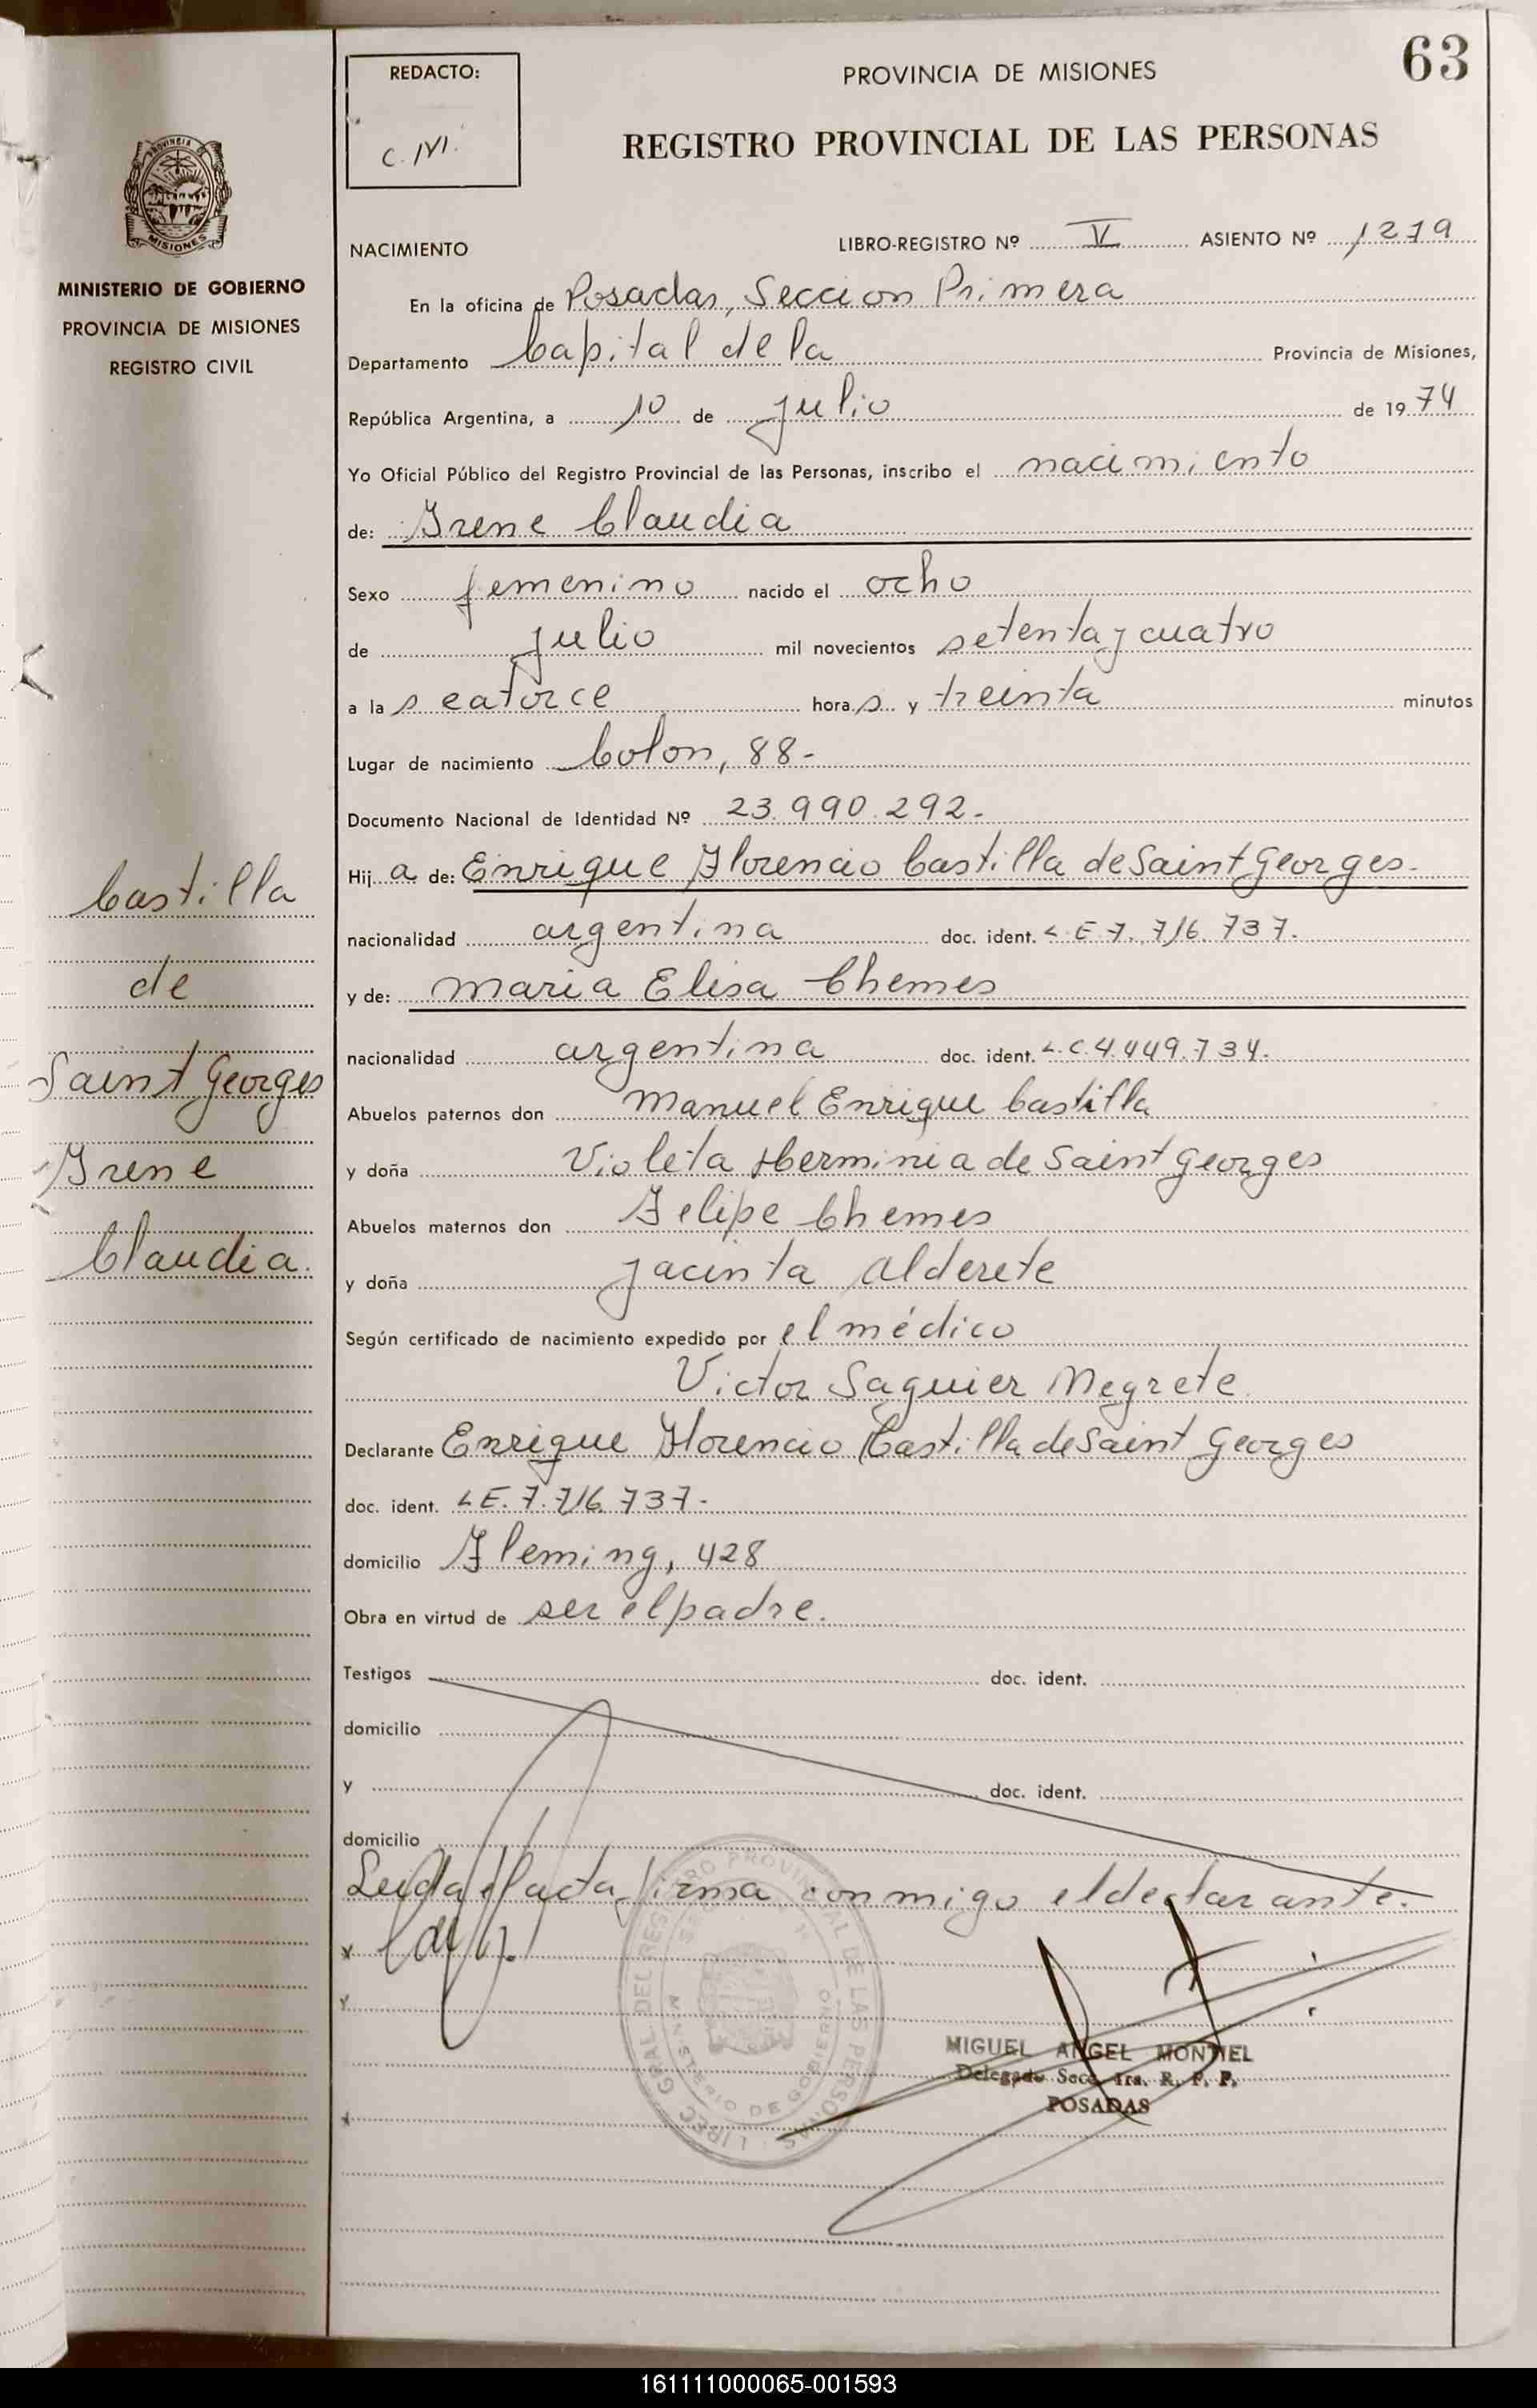 63
REDACTO:
PROVINCIA DE MISIONES
REGISTRO PROVINCIAL DE LAS PERSONAS
PROVINCIA
MISIONES
MINISTERIO DE GOBIERNO
PROVINCIA DE MISIONES
REGISTRO CIVIL
NACIMIENTO LIBRO-REGISTRO Nº V ASIENTO Nº 1279
En la oficina de Posadas, Seccion Primera
Departamento Capital de la Provincia de Misiones,
República Argentina, a 10 de julio de 1974
Yo Oficial Público del Registro Provincial de las Personas, inscribo el nacimiento
de: Irene Claudia
Sexo femenino nacido el ocho
de julio mil novecientos setenta y cuatro
a la s catorce hora s y treinta minutos
Lugar de nacimiento Colon, 88-
Documento Nacional de Identidad Nº 23.990.292-
Hij a de: Enrique Florencio Castilla de Saint Georges-
nacionalidad argentina doc. ident. L.E. 7.716.737-
y de: maria Elisa Chemes
nacionalidad argentina doc. ident. L.C. 4.449.734-
Abuelos paternos don Manuel Enrique Castilla
y doña Violeta Herminia de Saint Georges
Abuelos maternos don Felipe Chemes
y doña Jacinta Alderete
Según certificado de nacimiento expedido por el médico
Victor Saguier Negrete
Declarante Enrique Florencio Castilla de Saint Georges
doc. ident. L.E. 7.716.737-
domicilio Fleming, 428
Obra en virtud de ser el padre.
Testigos doc. ident.
domicilio
y doc. ident.
domicilio
Leida el acta firma conmigo el declarante.
Castilla
de
Saint Georges
Irene
Claudia.
MIGUEL ANGEL MONTIEL
Delegado Secc. 1ra. R. P. P.
POSADAS
DIREC. GRAL. DEL REGISTRO PROVINCIAL DE LAS PERSONAS
MINISTERIO DE GOBIERNO
161111000065-001593